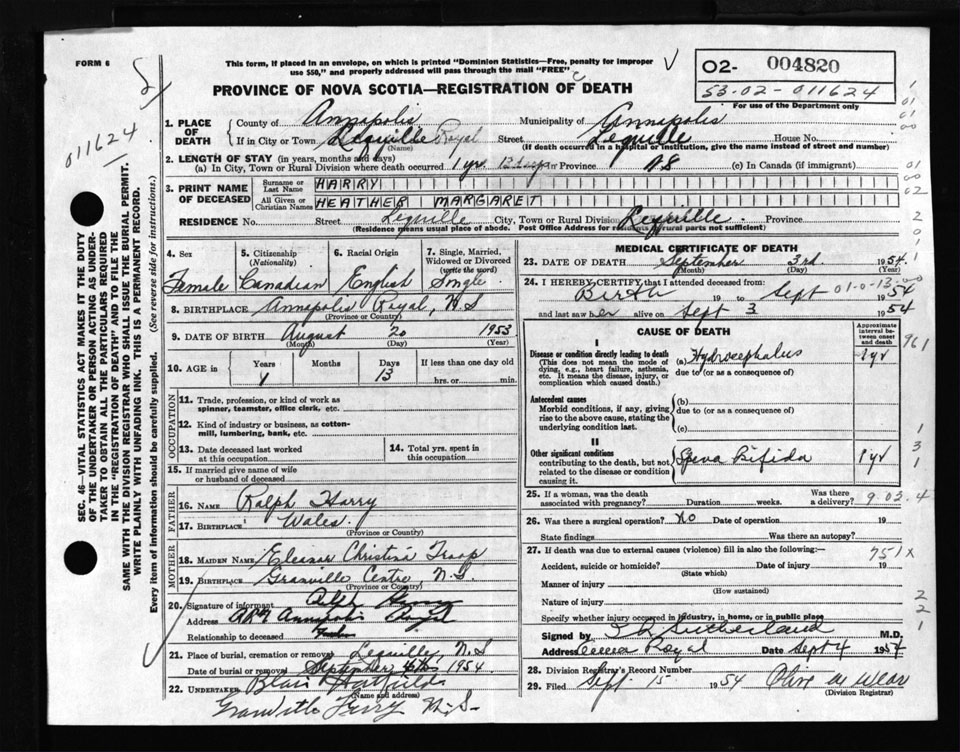 FORM 6
This form, if placed in an envelope, on which is printed "Dominion Statistics—Free, penalty for improper
use $50," and properly addressed will pass through the mail "FREE"
PROVINCE OF NOVA SCOTIA—REGISTRATION OF DEATH
02- 004820
53-02-011624
For use of the Department only
011624
SEC. 46—VITAL STATISTICS ACT MAKES IT THE DUTY
OF THE UNDERTAKER OR PERSON ACTING AS UNDER-
TAKER TO OBTAIN ALL THE PARTICULARS REQUIRED
IN THE "REGISTRATION OF DEATH" AND TO FILE THE
SAME WITH THE DIVISION REGISTRAR WHO SHALL ISSUE THE BURIAL PERMIT.
WRITE PLAINLY WITH UNFADING INK. THIS IS A PERMANENT RECORD.
Every item of information should be carefully supplied. (See reverse side for instructions.)
1. PLACE OF DEATH
County of Annapolis Municipality of Annapolis
If in City or Town Lequille Royal Street Lequille House No.
(Name) (If death occurred in a hospital or institution, give the name instead of street and number)
2. LENGTH OF STAY (in years, months and days)
(a) In City, Town or Rural Division where death occurred 1 yr. 13 days Province N S (c) In Canada (if immigrant)
3. PRINT NAME OF DECEASED
Surname or Last Name HARRY
All Given or Christian Names HEATHER MARGARET
RESIDENCE No. Street Lequille City, Town or Rural Division Lequille Province
(Residence means usual place of abode. Post Office Address for residents rural parts not sufficient)
4. Sex
5. Citizenship (Nationality)
6. Racial Origin
7. Single, Married, Widowed or Divorced (write the word)
Female Canadian English Single
8. BIRTHPLACE Annapolis Royal, N S
(Province or Country)
9. DATE OF BIRTH August 20 1953
(Month) (Day) (Year)
10. AGE in
Years Months Days If less than one day old
1 13 hrs. or min.
OCCUPATION
11. Trade, profession, or kind of work as
spinner, teamster, office clerk, etc.
12. Kind of industry or business, as cotton-
mill, lumbering, bank, etc.
13. Date deceased last worked
at this occupation
14. Total yrs. spent in
this occupation
15. If married give name of wife
or husband of deceased
FATHER
16. NAME Ralph Harry
17. BIRTHPLACE Wales.
(Province or Country)
MOTHER
18. MAIDEN NAME Eleanor Christine Troop
19. BIRTHPLACE Granville Centre N.S.
(Province or Country)
20. Signature of informant
Address Annapolis Royal
Relationship to deceased
21. Place of burial, cremation or removal Lequille N.S
Date of burial or removal September 1954
22. UNDERTAKER Blair Hatfield
(Name and address)
Granville Ferry N.S.
MEDICAL CERTIFICATE OF DEATH
23. DATE OF DEATH September 3rd 1954
(Month) (Day) (Year)
24. I HEREBY CERTIFY that I attended deceased from:
Birth 19 to Sept 1954
and last saw her alive on Sept 3 1954
CAUSE OF DEATH
Approximate interval between onset and death
I
Disease or condition directly leading to death
(This does not mean the mode of
dying, e.g., heart failure, asthenia,
etc. It means the disease, injury, or
complication which caused death.)
(a) Hydrocephalus 1 yr
due to (or as a consequence of)
Antecedent causes
Morbid conditions, if any, giving
rise to the above cause, stating the
underlying condition last.
(b)
due to (or as a consequence of)
(c)
II
Other significant conditions
contributing to the death, but not
related to the disease or condition
causing it.
Spina Bifida 1 yr
961
25. If a woman, was the death
associated with pregnancy? Duration weeks. Was there a delivery?
9 02.4
26. Was there a surgical operation? No Date of operation 19
State findings Was there an autopsy?
27. If death was due to external causes (violence) fill in also the following:— 751X
Accident, suicide or homicide? Date of injury 19
(State which)
Manner of injury
(How sustained)
Nature of injury
Specify whether injury occurred in industry, in home, or in public place
Signed by Sutherland M.D.
Address Royal Date Sept 4 1954
28. Division Registrar's Record Number
29. Filed Sept. 15 1954 Olive
(Division Registrar)